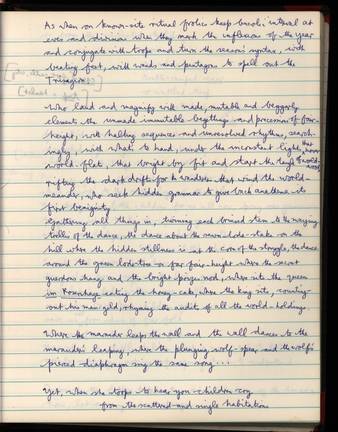 As when on known-site ritual frolics keep bucolic interval at
eves and divisions when they mark the inflexions of the year
and conjugate with trope and turn the season's syntax, with
beating feet, with wands and pentagons to spell out the
Trisagion.
Who laud and magnify with made, mutable and beggarly
elements the unmade immutable begettings and precessions of fair-
height, with halting sequences and unresolved rhythms, search-
ingly, with what's to hand, under the inconstant lights that hover
world-flats, that bright by fit and start the tangle of world-wood,
rifting the dark drifts for the wanderers that wind the world-
meander, who seek hidden grammar to give back anathema its
first benignity.
Gathering all things in, twining each bruised stem to the swaying
trellis of the dance, the dance about the sawn lode-stake on the
hill where the hidden stillness is at the core of struggle, the dance
around the green lode-tree on far fair-height where the secret
guerdons hang and the bright prizes nod, where sits the queen
im Rosenhage eating the honey-cake, where the king sits, counting-
out his man-geld, rhyming the audits of all the world-holdings.
Where the marauder leaps the wall and the wall dances to the
marauder's leaping, where the plunging wolf-spear and the wolf's
pierced diaphragm sing the same song . . .
Yet, when she stoops to hear you children cry
from the scattered and single habitations